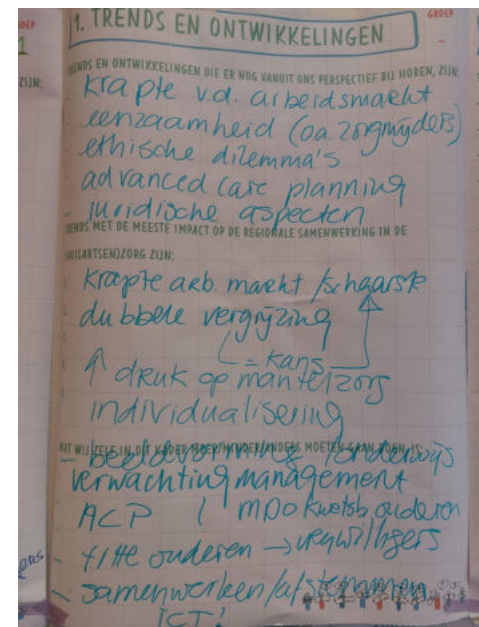 GROEP
1. TRENDS EN ONTWIKKELINGEN
TRENDS EN ONTWIKKELINGEN DIE ER NOG VANUIT ONS PERSPECTIEF BIJ HOREN, ZIJN:
ZIJN:
krapte v.d. arbeidsmarkt
eenzaamheid (oa. zorgmijders)
ethische dilemma's
advanced care planning
- juridische aspecten
TRENDS MET DE MEESTE IMPACT OP DE REGIONALE SAMENWERKING IN DE
(HUISARTSEN)ZORG ZIJN:
krapte arb. markt / schaarste
dubbele vergrijzing
= kans
↑ druk op mantelzorg
individualisering
WAT WIJ ZELF IN DIT KADER MEER/MINDER/ANDERS MOETEN GAAN DOEN, IS:
- / onderwijs
verwachting management
ACP / MDO kwetsb. ouderen
- fitte ouderen → vrijwilligers
- samenwerken/afstemmen
ICT!